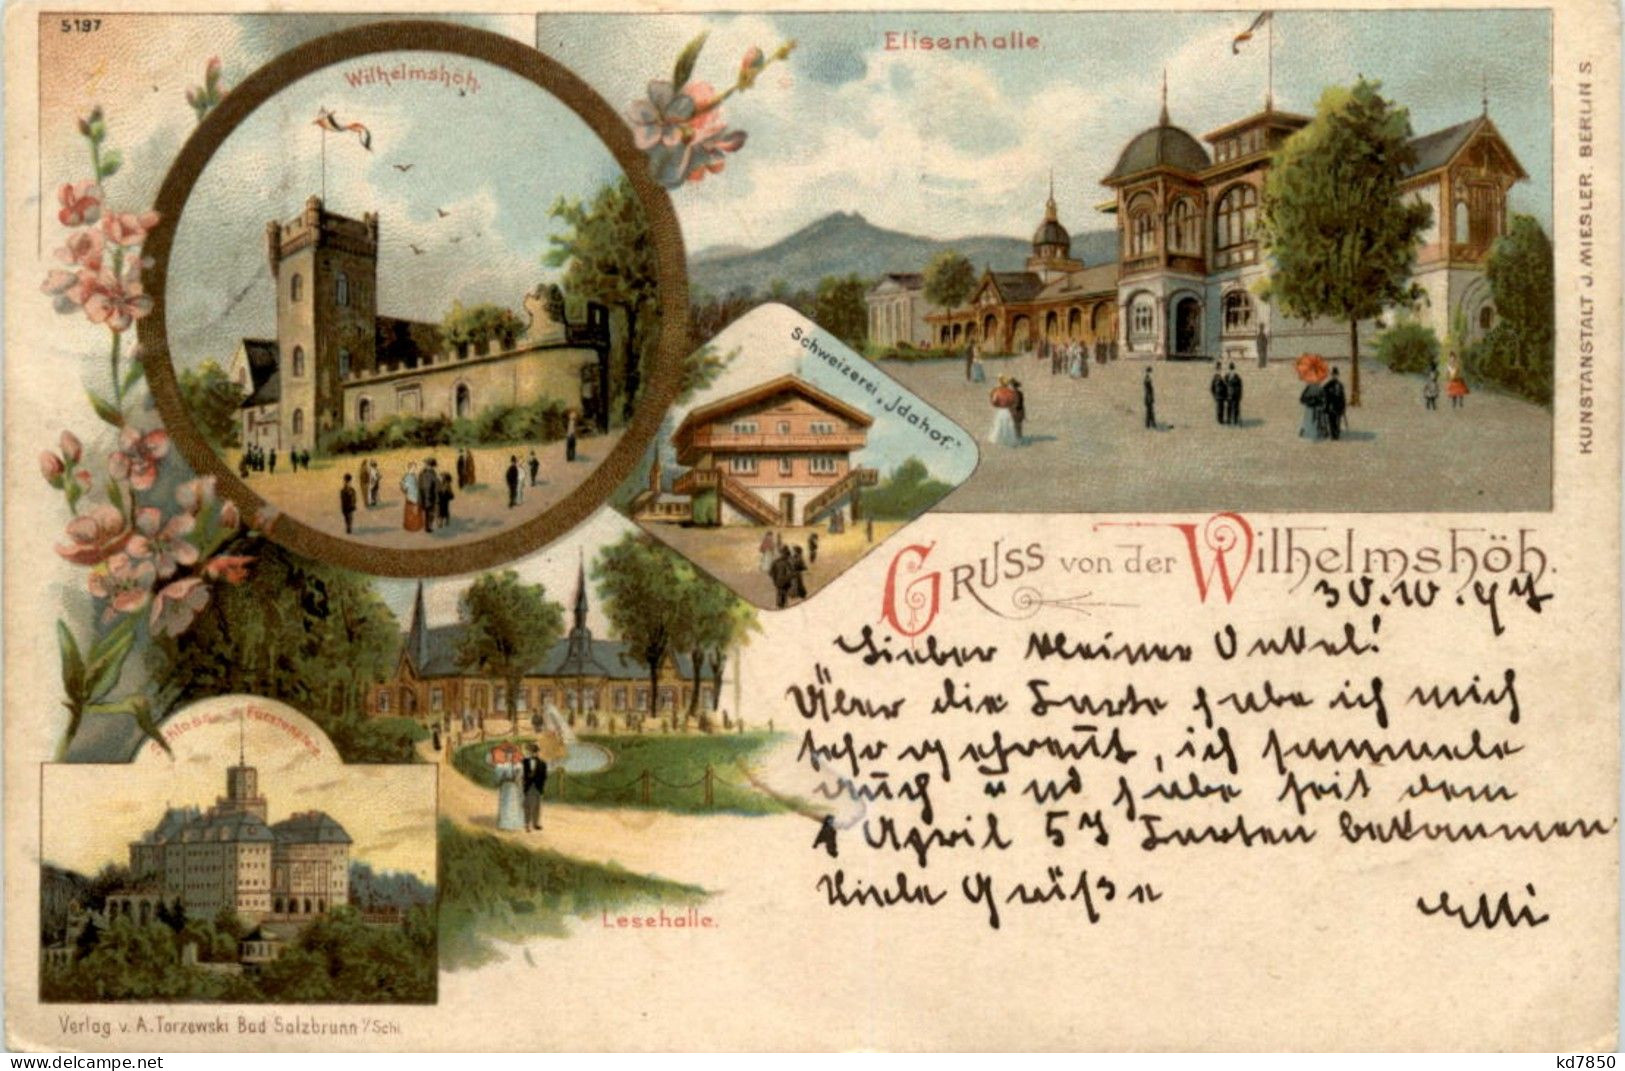 5197
Wilhelmshöh.
Elisenhalle.
KUNSTANSTALT J. MIESLER. BERLIN S.
Schweizerei „Jdahof."
GRUSS von der Wilhelmshöh.
30.10.97
Lieber kleiner Onkel!
Über die Karte habe ich mich
sehr gefreut, ich sammele
auch und habe seit dem
1 April 57 Karten bekommen
Viele Grüße Elli
Schloss Fürstenstein
Lesehalle.
Verlag v. A. Torzewski Bad Salzbrunn i/Schl.
delcampe.net
kd7850